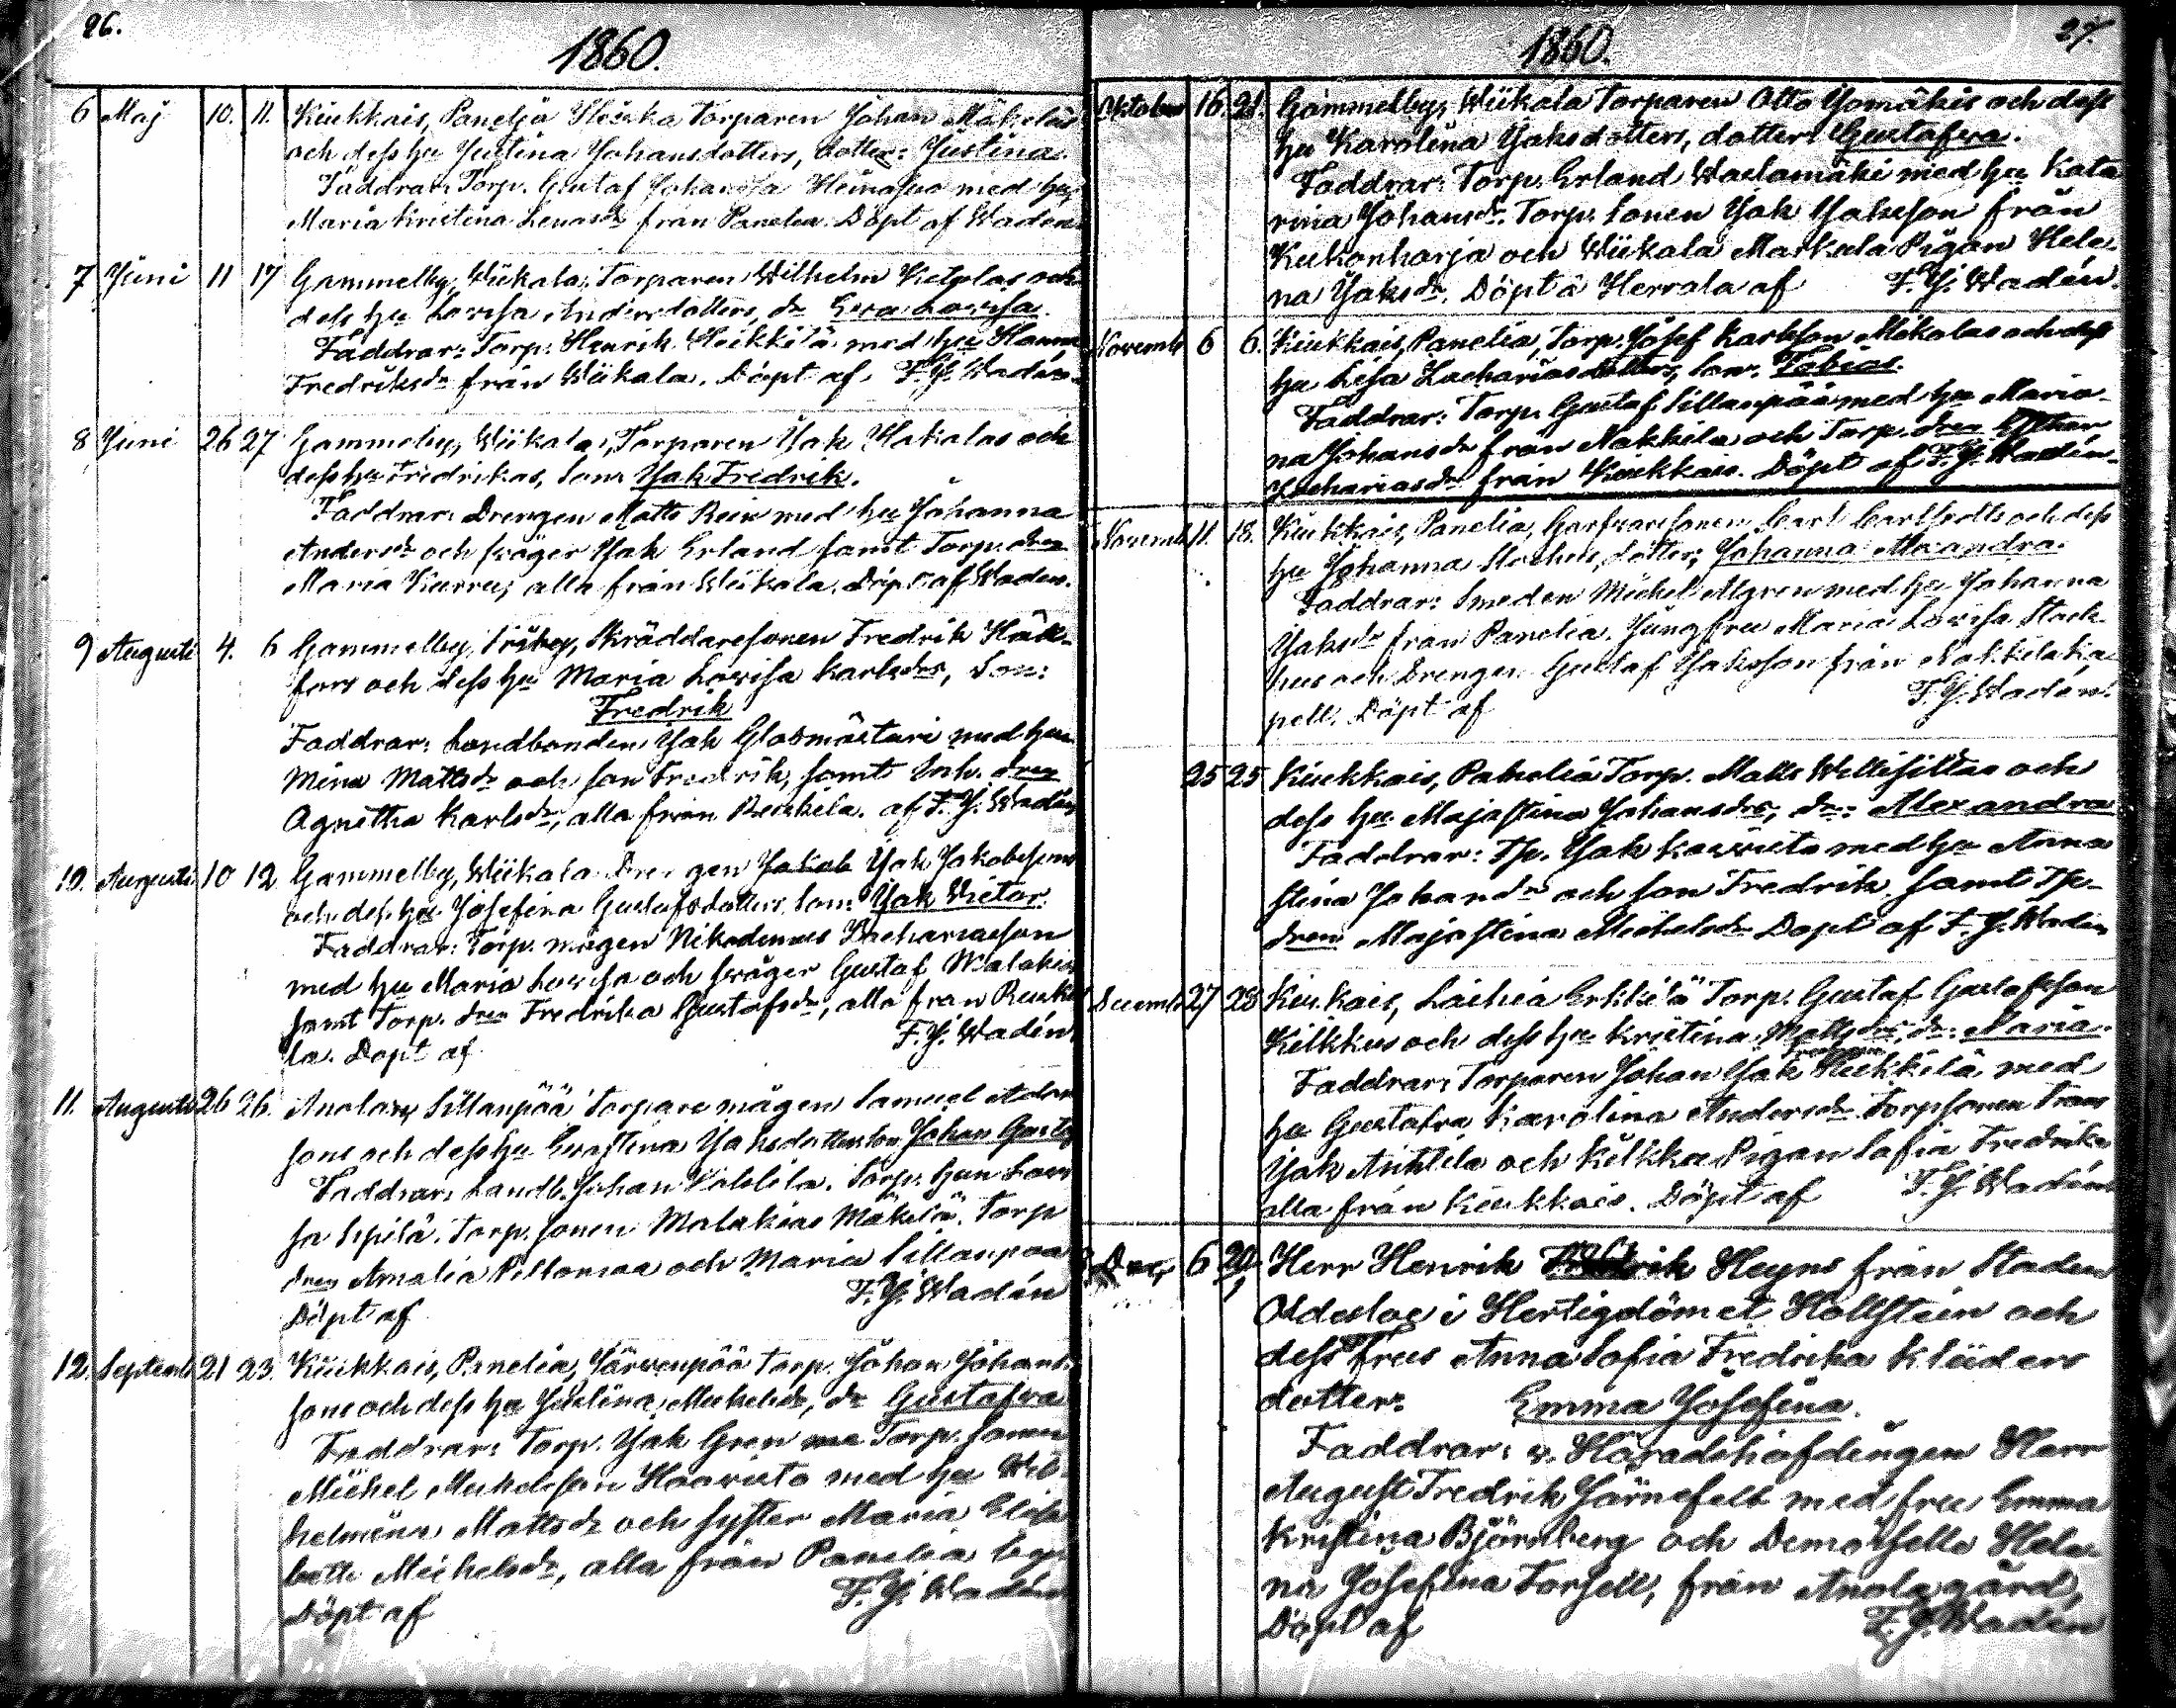 26.
1860.
6 Maj 10. 11. Kiukkais, Panelja Torparen Johan Mäkeläs
och dess hu Justina Johansdotters, dotter: Justina.
Faddrar: Torp. Gustaf med hu
Maria Kristina från Panelia. Döpt af Waden
7 Juni 11 17 Gammelby, Wiikala, Torparen Wilhelm och
dess hu Lovisa Andersdotters, dr Eva Lovisa.
Faddrar: Torp. Henrik Heikkilä med hu Hanna
Fredriksdr från Wiikala. Döpt af F. J. Wadén
8 Juni 26 27 Gammelby, Wiikala, Torparen Jak Hakalas och
dess hu Fredrikas, Son: Jak Fredrik.
Faddrar: Drengen Matts med hu Johanna
Andersdr och svåger Jak Erland samt Torp. dren
Maria alla från Wiikala. Döpt af Waden.
9 Augusti 4. 6 Gammelby, Skräddaresonen Fredrik
fors och dess hu Maria Lovisa Karlsdrs, Son:
Fredrik
Faddrar: Landbonden Jak Glasmästari med hu
Mina Mattsdr och son Fredrik, samt Inh. dren
Agnetha Karlsdr, alla från af F. J. Wadén
10. Augusti 10 12 Gammelby, Wiikala Drengen Jakob Jak Jakobssons
och dess hu Josefina Gustafsdotters, Son: Jak Victor.
Faddrar: Torp. mågen Nikodemus Zachariasson
med hu Maria Lovisa och svåger Gustaf Malakias
samt Torp. dren Fredrika Gustafsdr, alla från
la. Döpt af F. J. Wadén
11. Augusti 26 26. Anola, Sillanpää Torpare mågen Samuel
sons och dess hu Jaksdotters son Johan Gustaf
Faddrar: Landb. Johan Torp. hun Lovi
sa Sipilä. Torp. sonen Malakias Mäkelä. Torp
dren Amalia och Maria Sillanpää
Döpt af F. J. Wadén
12. Septemb 21 23. Kiukkais, Panelia, Järvenpää Torp. Johan Johans
sons och dess hu Justina Michelsdr, dr Gustafva
Faddrar: Torp. Jak Gren Torp. sonen
Michel Michelsson Haavisto med hu Wil
helmina Mattsdr och syster Maria Elisa
beth Michelsdr, alla från Panelia by.
Döpt af F. J. Wadén
27.
1860.
Oktober 16. 21. Gammelby, Wiikala Torparen Otto Jomäkis och dess
hu Karolina Jaksdotters, dotter: Gustafva.
Faddrar: Torp. Erland med hu Kata
rina Johansdr. Torp. Sonen Jak Jaksson från
Kukonharja och Wiikala Markula Pigan Hele-
na Jaksdr. Döpt å Herrala af F. J. Wadén.
Novemb 6 6. Kiukkais, Panelia, Torp. Josef Karlsson Mikolas och dess
hu Lisa Zachariasdotters, Son: Tobias.
Faddrar: Torp. Gustaf Sillanpää med hu Maria-
na Johansdr från Nakkila och Torp. dren
Zachariasdr från Kiukkais. Döpt af F. J. Wadén.
Novemb 11. 18. Kiukkais, Panelia, Garfvaresonen Carl och dess
hu Johanna dotter: Johanna Alexandra.
Faddrar: Smeden Michel Algren med hu Johanna
Jaksdr från Panelia. Jungfru Maria Lovisa Stock
hus och Drengen Gustaf Jaksson från Nakkila ka
pell. Döpt af F. J. Wadén.
25 25 Kiukkais, Panelia Torp. Matts och
dess hu Majastina Johansdrs, dr: Alexandra
Faddrar: Tp. Jak med hu Anna
Stina Johansdr och son Fredrik samt Tp-
dren Majastina Michelsdr Döpt af F. J. Wadén
Decemb 27 28 Kiukais, Laihia Erkkilä Torp. Gustaf Gustafsson
Kilkkus och dess hu Kristina Mattsdrs, dr: Maria.
Faddrar: Torparen Johan Jak Heikkilä med
hu Gustafva Karolina Andersdr. Torpsonen Frans
Jak Anttila och Kilkku Pigan Sofia Fredrika
alla från Kiukkais. Döpt af F. J. Wadén
6 20 Herr Henrik Heyns från Staden
Oldesloe i Hertigdömet Hollstein och
dess Frus Anna Sofia Fredrika Klüders
dotter: Emma Josefina.
Faddrar: v. Häradshöfdingen Herr
August Fredrik Järnefelt med fru Emma
Kristina Björnberg och Demoiselle Hele-
na Josefina Forsell, från Anola gård,
Döpt af F. J. Wadén